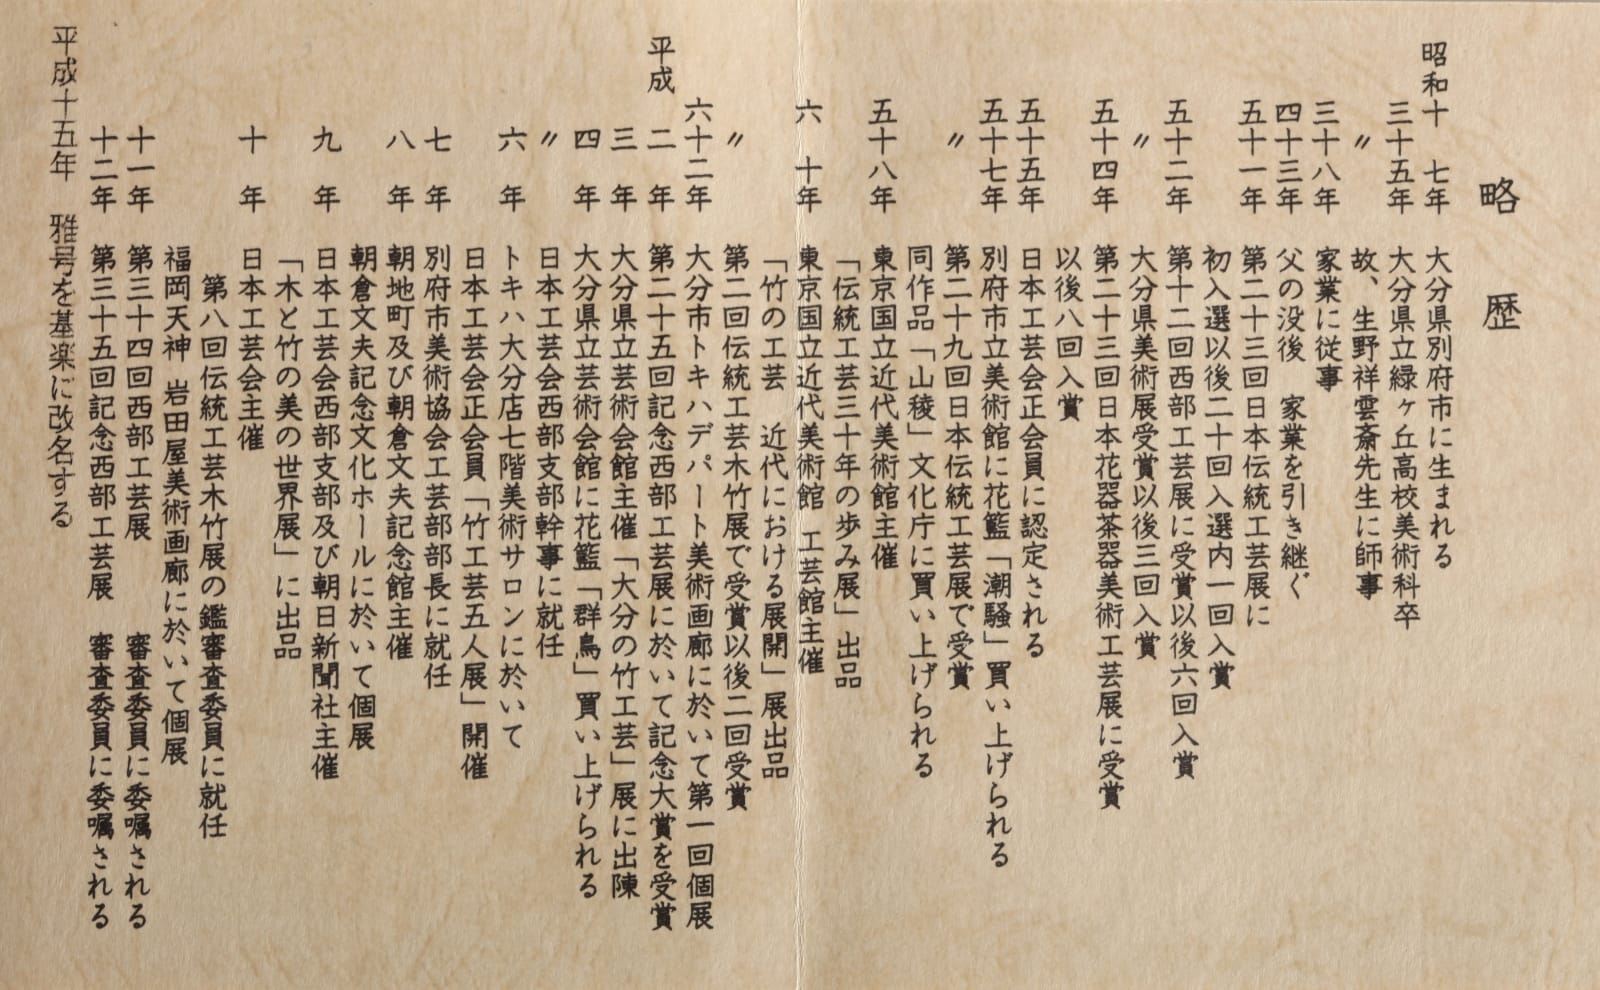 略歴
昭和十七年 大分県別府市に生まれる
三十五年 大分県立緑ヶ丘高校美術科卒
〃 故、生野祥雲斎先生に師事
三十八年 家業に従事
四十三年 父の没後 家業を引き継ぐ
五十一年 第二十三回日本伝統工芸展に
初入選以後二十回入選内一回入賞
五十二年 第十二回西部工芸展に受賞以後六回入賞
〃 大分県美術展受賞以後三回入賞
五十四年 第二十三回日本花器茶器美術工芸展に受賞
以後八回入賞
五十五年 日本工芸会正会員に認定される
五十七年 別府市立美術館に花籃「潮騒」買い上げられる
〃 第二十九回日本伝統工芸展で受賞
同作品「山稜」文化庁に買い上げられる
五十八年 東京国立近代美術館主催
「伝統工芸三十年の歩み展」出品
六十年 東京国立近代美術館 工芸館主催
「竹の工芸 近代における展開」展出品
〃 第二回伝統工芸木竹展で受賞以後二回受賞
六十二年 大分市トキハデパート美術画廊に於いて第一回個展
平成二年 第二十五回記念西部工芸展に於いて記念大賞を受賞
三年 大分県立芸術会館主催「大分の竹工芸」展に出陳
四年 大分県立芸術会館に花籃「群鳥」買い上げられる
〃 日本工芸会西部支部幹事に就任
六年 トキハ大分店七階美術サロンに於いて
日本工芸会正会員「竹工芸五人展」開催
七年 別府市美術協会工芸部部長に就任
八年 朝地町及び朝倉文夫記念館主催
朝倉文夫記念文化ホールに於いて個展
九年 日本工芸会西部支部及び朝日新聞社主催
「木と竹の美の世界展」に出品
十年 日本工芸会主催
第八回伝統工芸木竹展の鑑審査委員に就任
福岡天神 岩田屋美術画廊に於いて個展
十一年 第三十四回西部工芸展 審査委員に委嘱される
十二年 第三十五回記念西部工芸展 審査委員に委嘱される
平成十五年 雅号を基楽に改名する